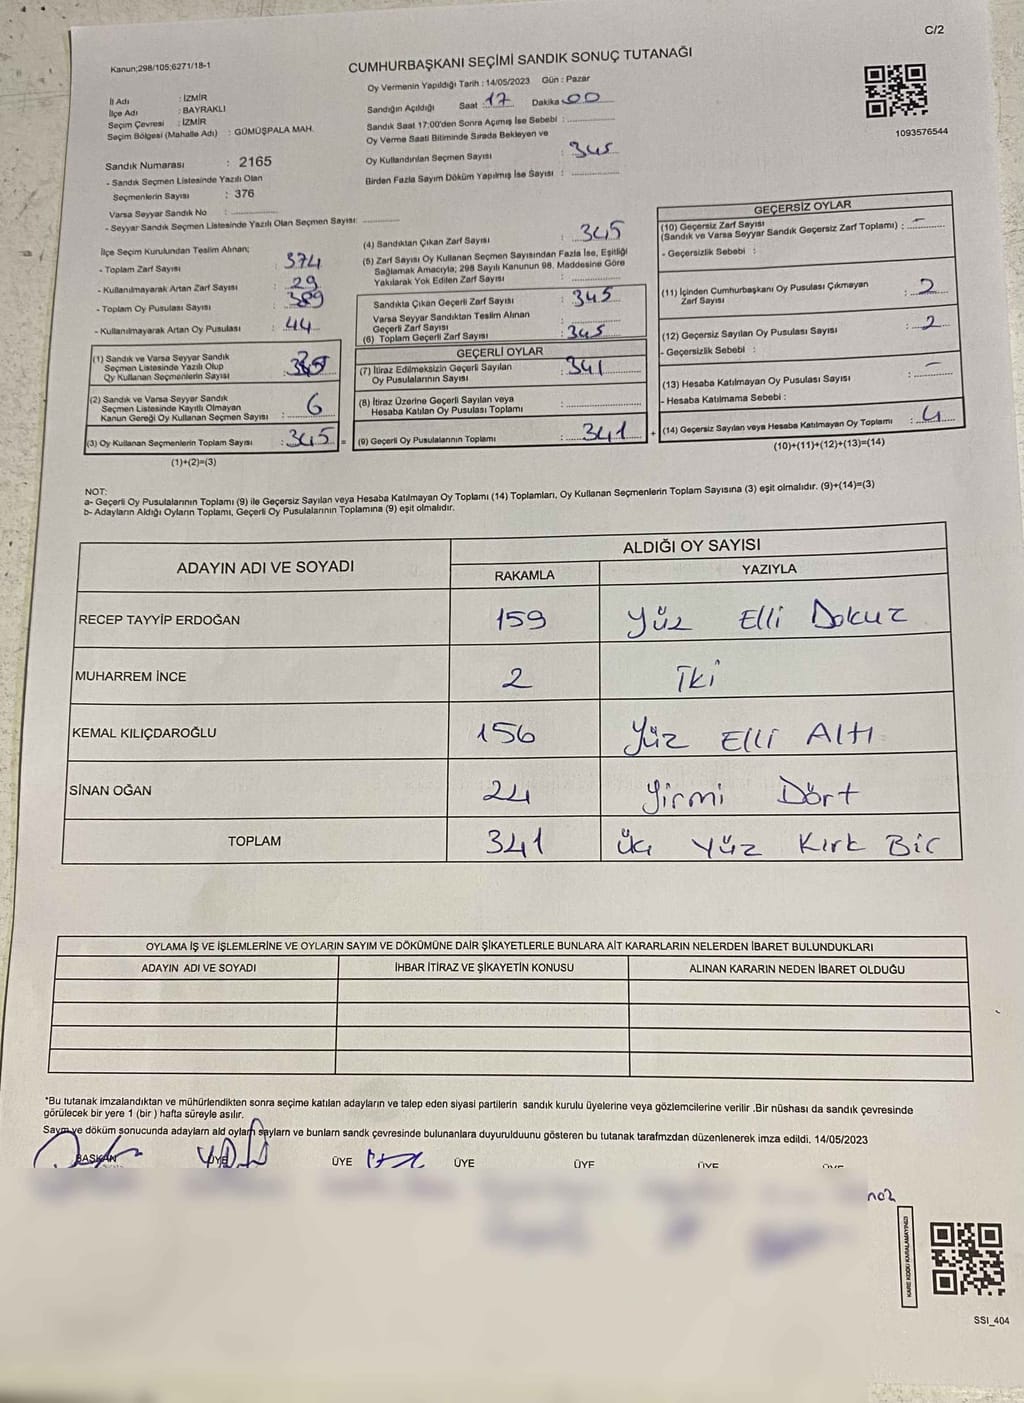 C/2
Kanun;298/105;6271/18-1
CUMHURBAŞKANI SEÇİMİ SANDIK SONUÇ TUTANAĞI
1093576544
İl Adı : İZMİR
İlçe Adı : BAYRAKLI
Seçim Çevresi : İZMİR
Seçim Bölgesi (Mahalle Adı) : GÜMÜŞPALA MAH.
Sandık Numarası : 2165
- Sandık Seçmen Listesinde Yazılı Olan
Seçmenlerin Sayısı : 376
Varsa Seyyar Sandık No :
- Seyyar Sandık Seçmen Listesinde Yazılı Olan Seçmen Sayısı:
Oy Vermenin Yapıldığı Tarih : 14/05/2023 Gün : Pazar
Sandığın Açıldığı Saat : 17 Dakika 00
Sandık Saat 17:00'den Sonra Açımış İse Sebebi :
Oy Verme Saati Bitiminde Sırada Bekleyen ve
Oy Kullandırılan Seçmen Sayısı : 345
Birden Fazla Sayım Döküm Yapılmış İse Sayısı :
İlçe Seçim Kurulundan Teslim Alınan;
- Toplam Zarf Sayısı : 374
- Kullanılmayarak Artan Zarf Sayısı : 29
- Toplam Oy Pusulası Sayısı : 389
- Kullanılmayarak Artan Oy Pusulası : 44
(1) Sandık ve Varsa Seyyar Sandık
Seçmen Listesinde Yazılı Olup
Oy Kullanan Seçmenlerin Sayısı :
(2) Sandık ve Varsa Seyyar Sandık
Seçmen Listesinde Kayıtlı Olmayan
Kanun Gereği Oy Kullanan Seçmen Sayısı : 6
(3) Oy Kullanan Seçmenlerin Toplam Sayısı : 345 =
(1)+(2)=(3)
(4) Sandıktan Çıkan Zarf Sayısı : 345
(5) Zarf Sayısı Oy Kullanan Seçmen Sayısından Fazla İse, Eşitliği
Sağlamak Amacıyla; 298 Sayılı Kanunun 98. Maddesine Göre
Yakılarak Yok Edilen Zarf Sayısı :
Sandıkta Çıkan Geçerli Zarf Sayısı : 345
Varsa Seyyar Sandıktan Teslim Alınan
Geçerli Zarf Sayısı :
(6) Toplam Geçerli Zarf Sayısı : 345
GEÇERLİ OYLAR
(7) İtiraz Edilmeksizin Geçerli Sayılan
Oy Pusulalarının Sayısı : 341
(8) İtiraz Üzerine Geçerli Sayılan veya
Hesaba Katılan Oy Pusulası Toplamı :
(9) Geçerli Oy Pusulalarının Toplamı : 341 +
GEÇERSİZ OYLAR
(10) Geçersiz Zarf Sayısı
(Sandık ve Varsa Seyyar Sandık Geçersiz Zarf Toplamı) : -
- Geçersizlik Sebebi :
(11) İçinden Cumhurbaşkanı Oy Pusulası Çıkmayan
Zarf Sayısı : 2
(12) Geçersiz Sayılan Oy Pusulası Sayısı : 2
- Geçersizlik Sebebi :
(13) Hesaba Katılmayan Oy Pusulası Sayısı : -
- Hesaba Katılmama Sebebi :
(14) Geçersiz Sayılan veya Hesaba Katılmayan Oy Toplamı : 4
(10)+(11)+(12)+(13)=(14)
NOT:
a- Geçerli Oy Pusulalarının Toplamı (9) ile Geçersiz Sayılan veya Hesaba Katılmayan Oy Toplamı (14) Toplamları, Oy Kullanan Seçmenlerin Toplam Sayısına (3) eşit olmalıdır. (9)+(14)=(3)
b- Adayların Aldığı Oyların Toplamı, Geçerli Oy Pusulalarının Toplamına (9) eşit olmalıdır.
ADAYIN ADI VE SOYADI ALDIĞI OY SAYISI
RAKAMLA YAZIYLA
RECEP TAYYİP ERDOĞAN 159 Yüz Elli Dokuz
MUHARREM İNCE 2 İki
KEMAL KILIÇDAROĞLU 156 Yüz Elli Altı
SİNAN OĞAN 24 Yirmi Dört
TOPLAM 341 Üç Yüz Kırk Bir
OYLAMA İŞ VE İŞLEMLERİNE VE OYLARIN SAYIM VE DÖKÜMÜNE DAİR ŞİKAYETLERLE BUNLARA AİT KARARLARIN NELERDEN İBARET BULUNDUKLARI
ADAYIN ADI VE SOYADI İHBAR İTİRAZ VE ŞİKAYETİN KONUSU ALINAN KARARIN NEDEN İBARET OLDUĞU
*Bu tutanak imzalandıktan ve mühürlendikten sonra seçime katılan adayların ve talep eden siyasi partilerin sandık kurulu üyelerine veya gözlemcilerine verilir .Bir nüshası da sandık çevresinde
görülecek bir yere 1 (bir ) hafta süreyle asılır.
Sayım ve döküm sonucunda adayların ald oyların sayların ve bunların sandk çevresinde bulunanlara duyurulduunu gösteren bu tutanak tarafmzdan düzenlenerek imza edildi. 14/05/2023
BAŞKAN ÜYE ÜYE ÜYE ÜYE ÜYE
KARE KODU KARALAMAYINIZ!
SSI_404